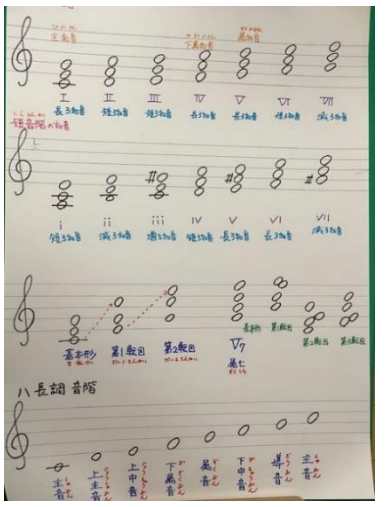 主和音 下属和音 属和音
I II III IV V VI VII
長3和音 短3和音 短3和音 長3和音 長3和音 短3和音 減3和音
短音階の和音
i ii iii IV V VI VII
短3和音 減3和音 増3和音 短3和音 長3和音 長3和音 減3和音
基本形 第1転回 第2転回 V7 基本形 第1転回 第2転回 第3転回
属七
ハ長調 音階
主音 上主音 上中音 下属音 属音 下中音 導音 主音